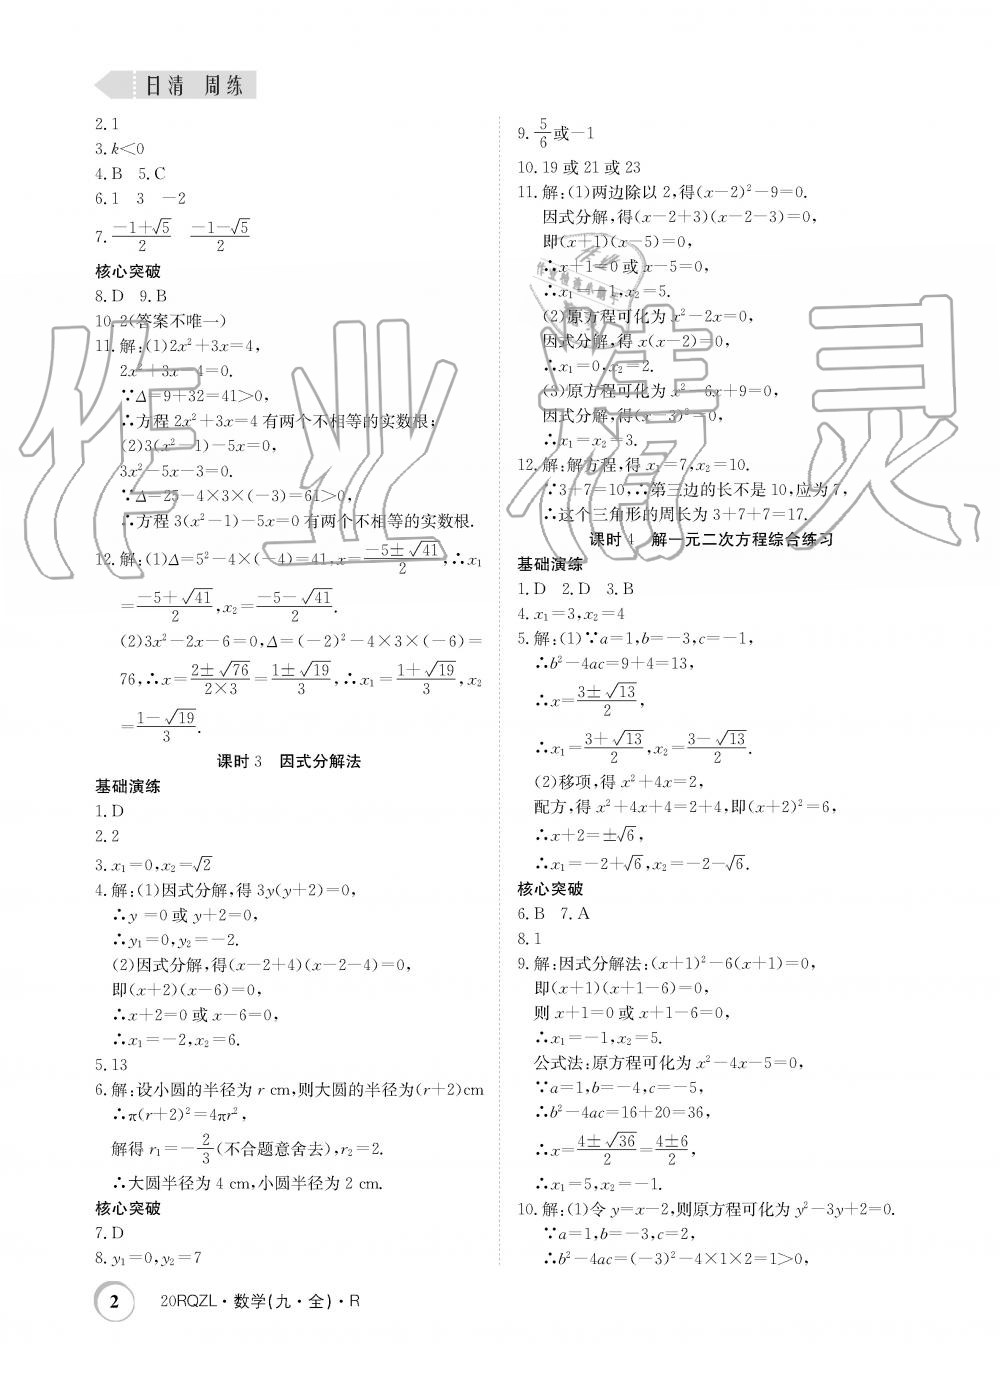 日清 周练
2.1
3.k<0
4.B 5.C
6.1 3 -2
7.(-1+√5)/2 (-1-√5)/2
核心突破
8.D 9.B
10.2(答案不唯一)
11.解:(1)2x²+3x=4,
2x²+3x-4=0.
∵Δ=9+32=41>0,
∴方程2x²+3x=4有两个不相等的实数根;
(2)3(x²-1)-5x=0,
3x²-5x-3=0.
∵Δ=25-4×3×(-3)=61>0,
∴方程3(x²-1)-5x=0有两个不相等的实数根.
12.解:(1)Δ=5²-4×(-4)=41,x=(-5±√41)/2,∴x₁
=(-5+√41)/2,x₂=(-5-√41)/2.
(2)3x²-2x-6=0,Δ=(-2)²-4×3×(-6)=
76,∴x=(2±√76)/(2×3)=(1±√19)/3,∴x₁=(1+√19)/3,x₂
=(1-√19)/3.
课时3 因式分解法
基础演练
1.D
2.2
3.x₁=0,x₂=√2
4.解:(1)因式分解,得3y(y+2)=0,
∴y=0或y+2=0,
∴y₁=0,y₂=-2.
(2)因式分解,得(x-2+4)(x-2-4)=0,
即(x+2)(x-6)=0,
∴x+2=0或x-6=0,
∴x₁=-2,x₂=6.
5.13
6.解:设小圆的半径为r cm,则大圆的半径为(r+2)cm
∴π(r+2)²=4πr²,
解得r₁=-2/3(不合题意舍去),r₂=2.
∴大圆半径为4 cm,小圆半径为2 cm.
核心突破
7.D
8.y₁=0,y₂=7
9.5/6或-1
10.19或21或23
11.解:(1)两边除以2,得(x-2)²-9=0.
因式分解,得(x-2+3)(x-2-3)=0,
即(x+1)(x-5)=0,
∴x+1=0或x-5=0,
∴x₁=-1,x₂=5.
(2)原方程可化为x²-2x=0,
因式分解,得x(x-2)=0,
∴x₁=0,x₂=2.
(3)原方程可化为x²-6x+9=0,
因式分解,得(x-3)²=0,
∴x₁=x₂=3.
12.解:解方程,得x₁=7,x₂=10.
∵3+7=10,∴第三边的长不是10,应为7,
∴这个三角形的周长为3+7+7=17.
课时4 解一元二次方程综合练习
基础演练
1.D 2.D 3.B
4.x₁=3,x₂=4
5.解:(1)∵a=1,b=-3,c=-1,
∴b²-4ac=9+4=13,
∴x=(3±√13)/2,
∴x₁=(3+√13)/2,x₂=(3-√13)/2.
(2)移项,得x²+4x=2,
配方,得x²+4x+4=2+4,即(x+2)²=6,
∴x+2=±√6,
∴x₁=-2+√6,x₂=-2-√6.
核心突破
6.B 7.A
8.1
9.解:因式分解法:(x+1)²-6(x+1)=0,
即(x+1)(x+1-6)=0,
则x+1=0或x+1-6=0,
∴x₁=-1,x₂=5.
公式法:原方程可化为x²-4x-5=0,
∵a=1,b=-4,c=-5,
∴b²-4ac=16+20=36,
∴x=(4±√36)/2=(4±6)/2,
∴x₁=5,x₂=-1.
10.解:(1)令y=x-2,则原方程可化为y²-3y+2=0.
∵a=1,b=-3,c=2,
∴b²-4ac=(-3)²-4×1×2=1>0,
2 20RQZL·数学(九·全)·R
作业精灵